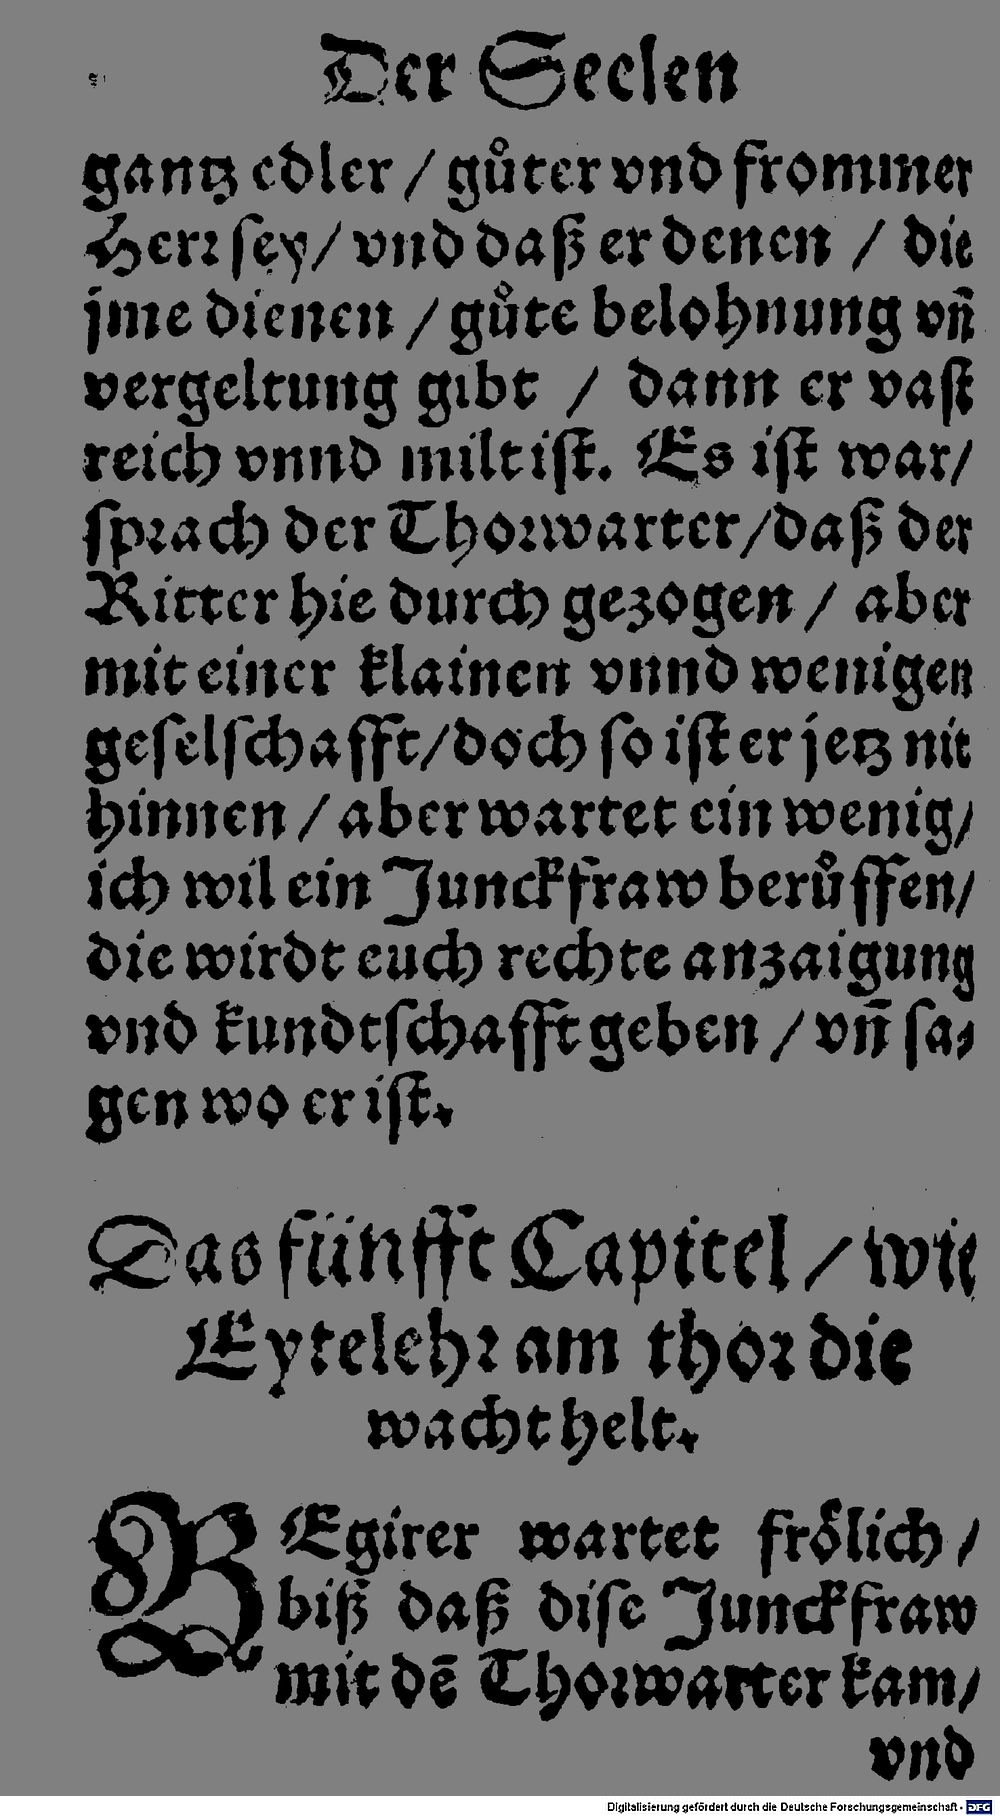 Der Seelen
gantz edler / gůter vnd frommer
Herr sey / vnd daß er denen / die
jme dienen / gůte belohnung vñ
vergeltung gibt / dann er vast
reich vnnd milt ist. Es ist war /
sprach der Thorwarter / daß der
Ritter hie durch gezogen / aber
mit einer klainen vnnd wenigen
geselschafft / doch so ist er jetz nit
hinnen / aber wartet ein wenig /
ich wil ein Junckfraw berůffen /
die wirdt euch rechte anzaigung
vnd kundtschafft geben / vñ sa-
gen wo er ist.
Das fünfft Capitel / wie
Eytelehr am thor die
wacht helt.
BEgirer wartet frölich /
biß daß dise Junckfraw
mit dē Thorwarter kam /
vnd
Digitalisierung gefördert durch die Deutsche Forschungsgemeinschaft - DFG